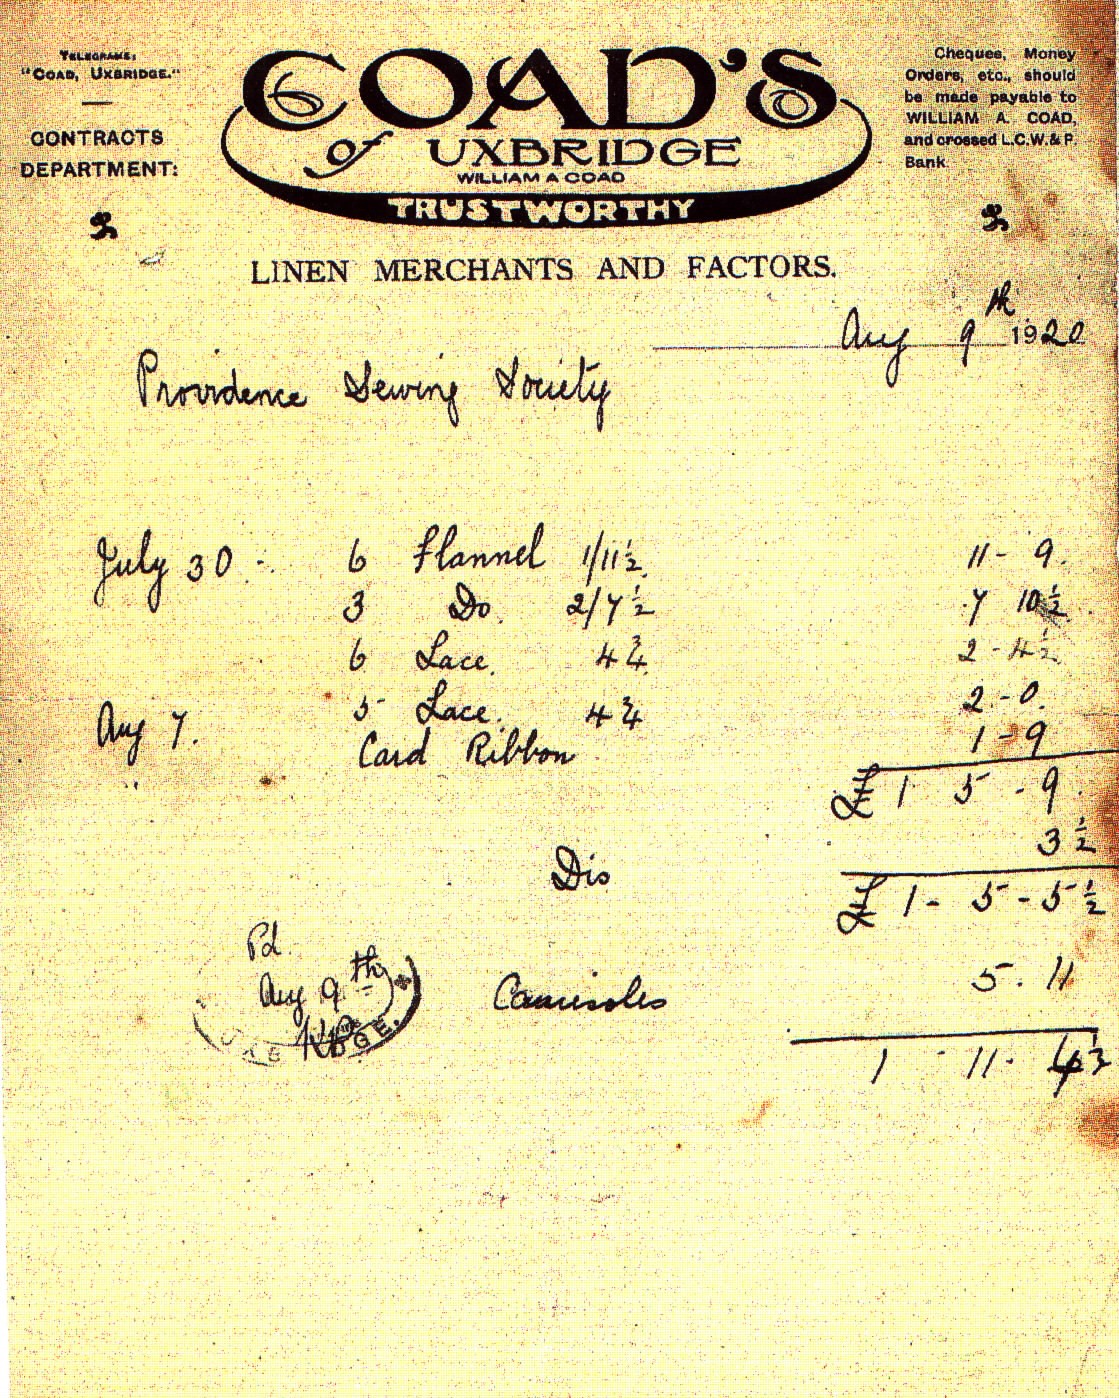 TELEGRAMS:
"COAD, UXBRIDGE."
CONTRACTS
DEPARTMENT:
COAD'S
of UXBRIDGE
WILLIAM A COAD
TRUSTWORTHY
Cheques, Money
Orders, etc., should
be made payable to
WILLIAM A. COAD,
and crossed L.C.W.& P.
Bank.
LINEN MERCHANTS AND FACTORS.
Aug 9th 1920
Providence Sewing Society
July 30 - 6 Flannel 1/11½ 11 - 9
3 Do. 2/7½ 7 10½
6 Lace. 4¾ 2 - 4½
5 Lace. 4¾ 2 - 0
Aug 7. Card Ribbon 1 - 9
£ 1 5 - 9
Dis 3½
£ 1 - 5 - 5½
Pd.
Aug 9th
Camisoles 5. 11
1 - 11 - 4½